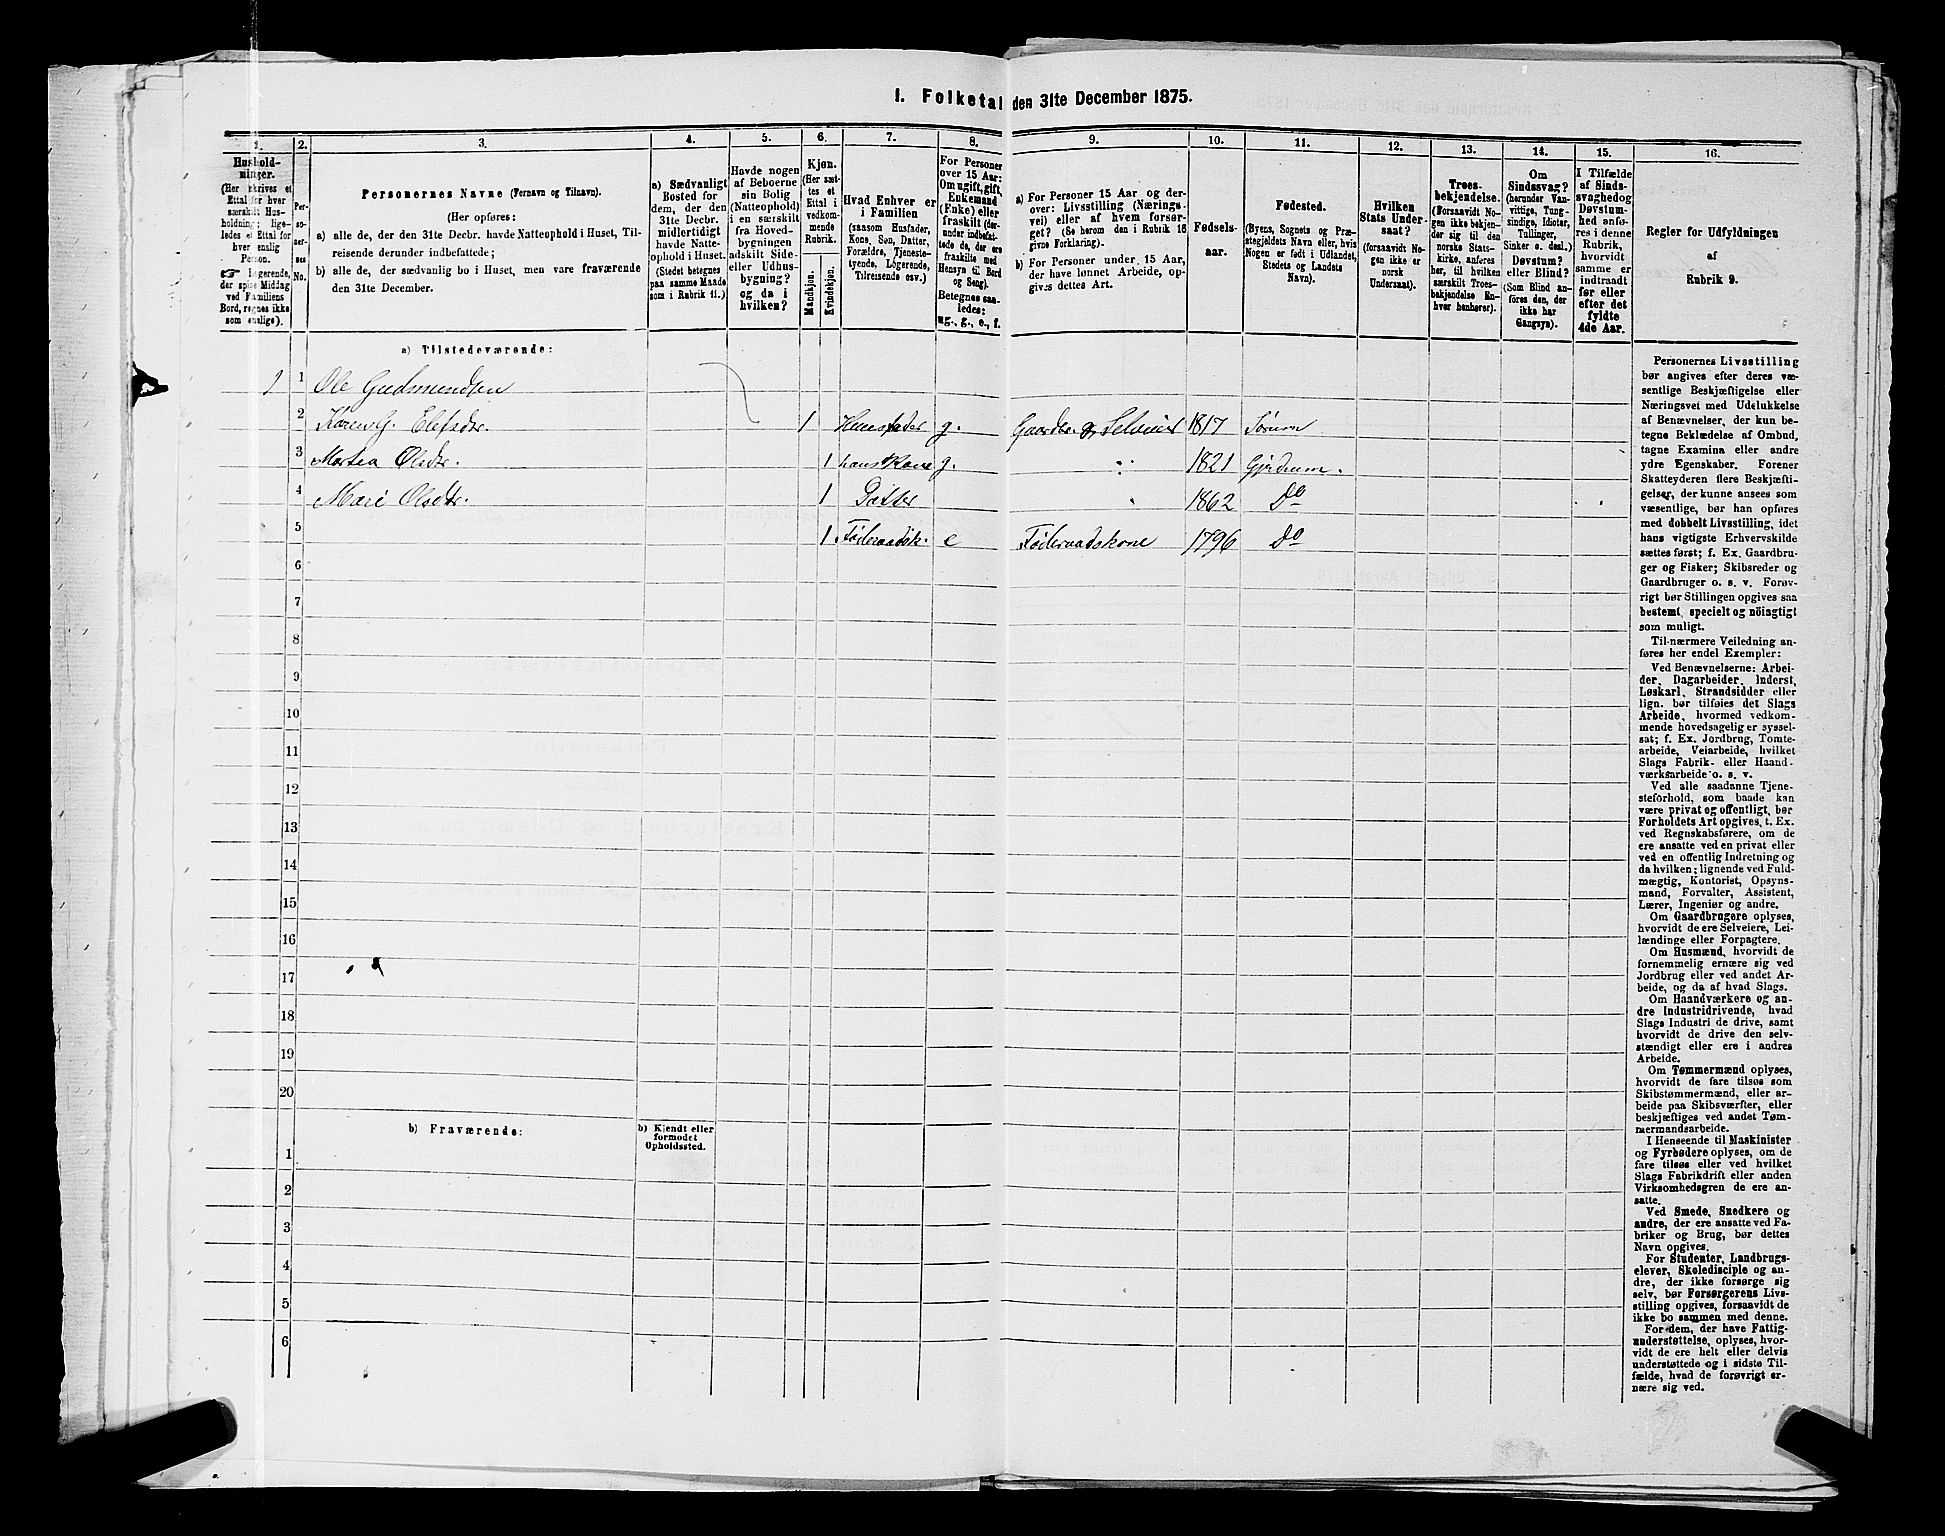 1. Folketal den 31te December 1875.
1. 2. 3. 4. 5. 6. 7. 8. 9. 10. 11. 12. 13. 14. 15. 16.
Hushold-
ninger.
(Her skrives et
Ettal for hver
særskilt Hus-
holdning; lige-
ledes et Ettal for
hver enslig
Person.
☞ Logerende,
der spise Middag
ved Familiens
Bord, regnes ikke
som enslige).
Per-
so-
ner-
nes
No.
Personernes Navne (Fornavn og Tilnavn).
(Her opføres:
a) alle de, der den 31te Decbr. havde Natteophold i Huset, Til-
reisende derunder indbefattede;
b) alle de, der sædvanlig bo i Huset, men vare fraværende
den 31te December.
a) Sædvanligt
Bosted for
dem, der den
31te Decbr.
midlertidigt
havde Natte-
ophold i Huset.
(Stedet betegnes
paa samme Maade
som i Rubrik 11.)
Havde nogen
af Beboerne
sin Bolig
(Natteophold)
i en særskilt
fra Hoved-
bygningen
adskilt Side-
eller Udhus-
bygning?
og da i
hvilken?
Kjøn.
(Her sæt-
tes et
Ettal i
vedkom-
mende
Rubrik.
Mandkjøn.
Kvindekjøn.
Hvad Enhver er
i Familien
(saasom Husfader,
Kone, Søn, Datter,
Forældre, Tjeneste-
tyende, Logerende,
Tilreisende osv.)
For Personer
over 15 Aar:
Om ugift, gift,
Enkemand
(Enke) eller
fraskilt (der-
under indbefat-
tede de, der ere
fraskilte med
Hensyn til Bord
og Seng).
Betegnes saa-
ledes:
ug., g., e., f.
a) For Personer 15 Aar og der-
over: Livsstilling (Nærings-
vei) eller af hvem forsør-
get? (Se herom den i Rubrik 16
givne Forklaring).
b) For Personer under 15 Aar,
der have lønnet Arbeide, op-
gives dettes Art.
Fødsels-
aar.
Fødested.
(Byens, Sognets og Præ-
stegjeldets Navn eller, hvis
Nogen er født i Udlandet,
Stedets og Landets
Navn).
Hvilken
Stats Under-
saat?
(forsaavidt No-
gen ikke er
norsk
Undersaat).
Troes-
bekjendelse.
(Forsaavidt No-
gen ikke bekjen-
der sig til den
norske Stats-
kirke, anføres
her, til hvilken
særskilt Troes-
bekjendelse En-
hver henhører).
Om
Sindssvag?
(herunder Van-
vittige, Tung-
sindige, Idioter,
Tullinger,
Sinker o. desl.)
Døvstum?
eller Blind?
(Som Blind an-
føres den, der
ikke har
Gangsyn).
I Tilfælde
af Sinds-
svaghed og
Døvstum-
hed anfø-
res i denne
Rubrik,
hvorvidt
samme er
indtraadt
før eller
efter det
fyldte
4de Aar.
Regler for Udfyldningen
af
Rubrik 9.
a) Tilstedeværende:
1 1 Ole Gudmundsen
2 Karen G. Elefsdr. 1 Huusfader g. Gaardbr. og Selveier 1817 Sørum
3 Martea Olsdtr. 1 hans Kone g. " 1821 Gjerdrum.
4 Mari Olsdtr. 1 Datter " 1862 Do
5 1 Føderaadsk. e Føderaadskone 1796 Do
6
7
8
9
10
11
12
13
14
15
16
17
18
19
20
b) Fraværende: b) Kjendt eller
formodet
Opholdssted.
1
2
3
4
5
6
Personernes Livsstilling
bør angives efter deres væ-
sentlige Beskjæftigelse eller
Næringsvei med Udelukkelse
af Benævnelser, der kun be-
tegne Beklædelse af Ombud,
tagne Examina eller andre
ydre Egenskaber. Forener
Skatteyderen flere Beskjæfti-
gelser, der kunne ansees som
væsentlige, bør han opføres
med dobbelt Livsstilling, idet
hans vigtigste Erhvervskilde
sættes først; f. Ex. Gaardbru-
ger og Fisker; Skibsreder og
Gaardbruger o. s. v. Forøv-
rigt bør Stillingen opgives saa
bestemt, specielt og nöiagtigt
som muligt.
Til nærmere Veiledning an-
føres her endel Exempler:
Ved Benævnelserne: Arbei-
der, Dagarbeider, Inderst,
Løskarl, Strandsidder eller
lign. bør tilføies det Slags
Arbeide, hvormed vedkom-
mende hovedsagelig er syssel-
sat; f. Ex. Jordbrug, Tomte-
arbeide, Veiarbeide, hvilket
Slags Fabrik- eller Haand-
værksarbeide o. s. v.
Ved alle saadanne Tjene-
steforhold, som baade kan
være privat og offentligt, bør
Forholdets Art opgives, t. Ex.
ved Regnskabsførere, om de
ere ansatte ved en privat eller
ved en offentlig Indretning og
da hvilken; lignende ved Fuld-
mægtig, Kontorist, Opsyns-
mand, Forvalter, Assistent,
Lærer, Ingeniør og andre.
Om Gaardbrugere oplyses,
hvorvidt de ere Selveiere, Lei-
lændinge eller Forpagtere.
Om Husmænd, hvorvidt de
fornemmelig ernære sig ved
Jordbrug eller ved andet Ar-
beide, og da af hvad Slags.
Om Haandværkere og an-
dre Industridrivende, hvad
Slags Industri de drive, samt
hvorvidt de drive den selv-
stændigt eller ere i andres
Arbeide.
Om Tømmermænd oplyses,
hvorvidt de fare tilsøs som
Skibstømmermænd, eller ar-
beide paa Skibsværfter, eller
beskjæftiges ved andet Tøm-
mermandsarbeide.
I Henseende til Maskinister
og Fyrbødere oplyses, om de
fare tilsøs eller ved hvilket
Slags Fabrikdrift eller anden
Virksomhedsgren de ere an-
satte.
Ved Smede, Snedkere og
andre, der ere ansatte ved Fa-
briker og Brug, bør dettes
Navn opgives.
For Studenter, Landbrugs-
elever, Skoledisciple og an-
dre, der ikke forsørge sig
selv, bør Forsørgerens Livs-
stilling opgives, forsaavidt de
ikke bo sammen med denne.
For dem, der have Fattig-
understøttelse, oplyses, hvor-
vidt de ere helt eller delvis
understøttede og i sidste Til-
fælde, hvad de forøvrigt er-
nære sig ved.